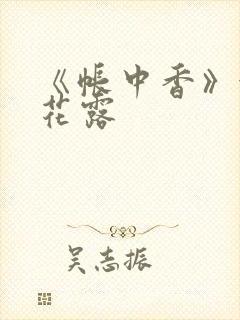 《帐中香》
花露
吴志振